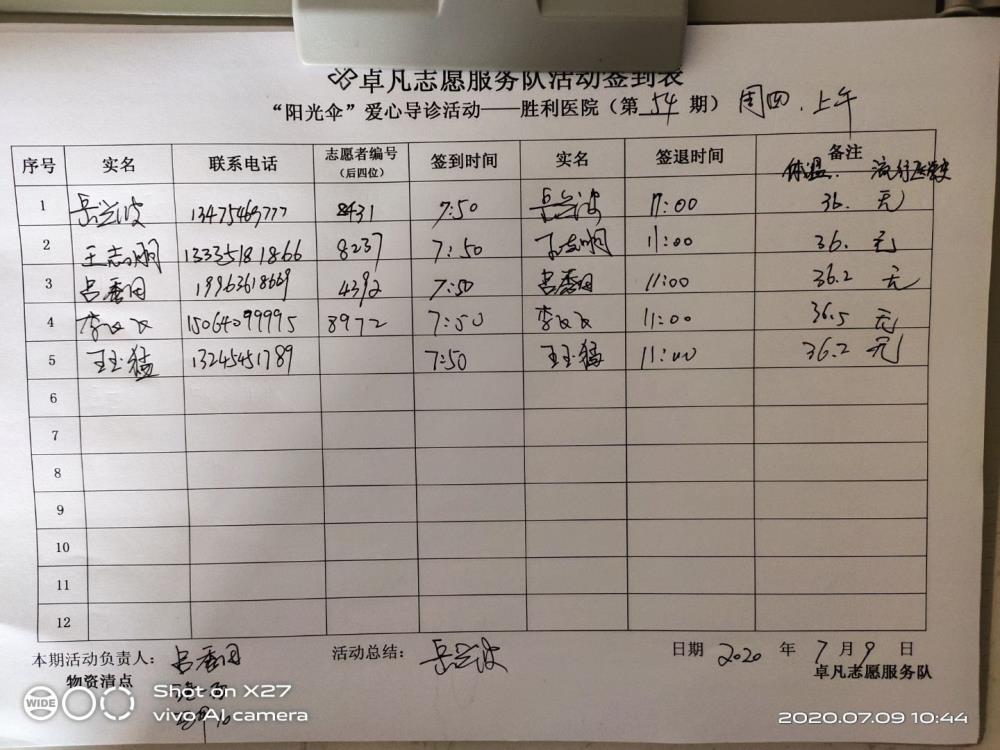 卓凡志愿服务队活动签到表
“阳光伞”爱心导诊活动——胜利医院（第 54 期）周四.上午
序号 实名 联系电话 志愿者编号（后四位） 签到时间 实名 签退时间 备注 体温. 流行医学史
1 岳兴波 13475469777 8431 7:50 岳兴波 11:00 36. 无
2 王志刚 13335181866 8237 7:50 11:00 36. 无
3 吕香田 19963618669 4392 7:50 吕香田 11:00 36.2 无
4 15064099995 8972 7:50 11:00 36.5 无
5 王玉猛 13245451789 7:50 王玉猛 11:00 36.2 无
6
7
8
9
10
11
12
本期活动负责人：吕香田 活动总结：岳兴波 日期 2020 年 7 月 9 日
物资清点 卓凡志愿服务队
WIDE Shot on X27
vivo AI camera
2020.07.09 10:44